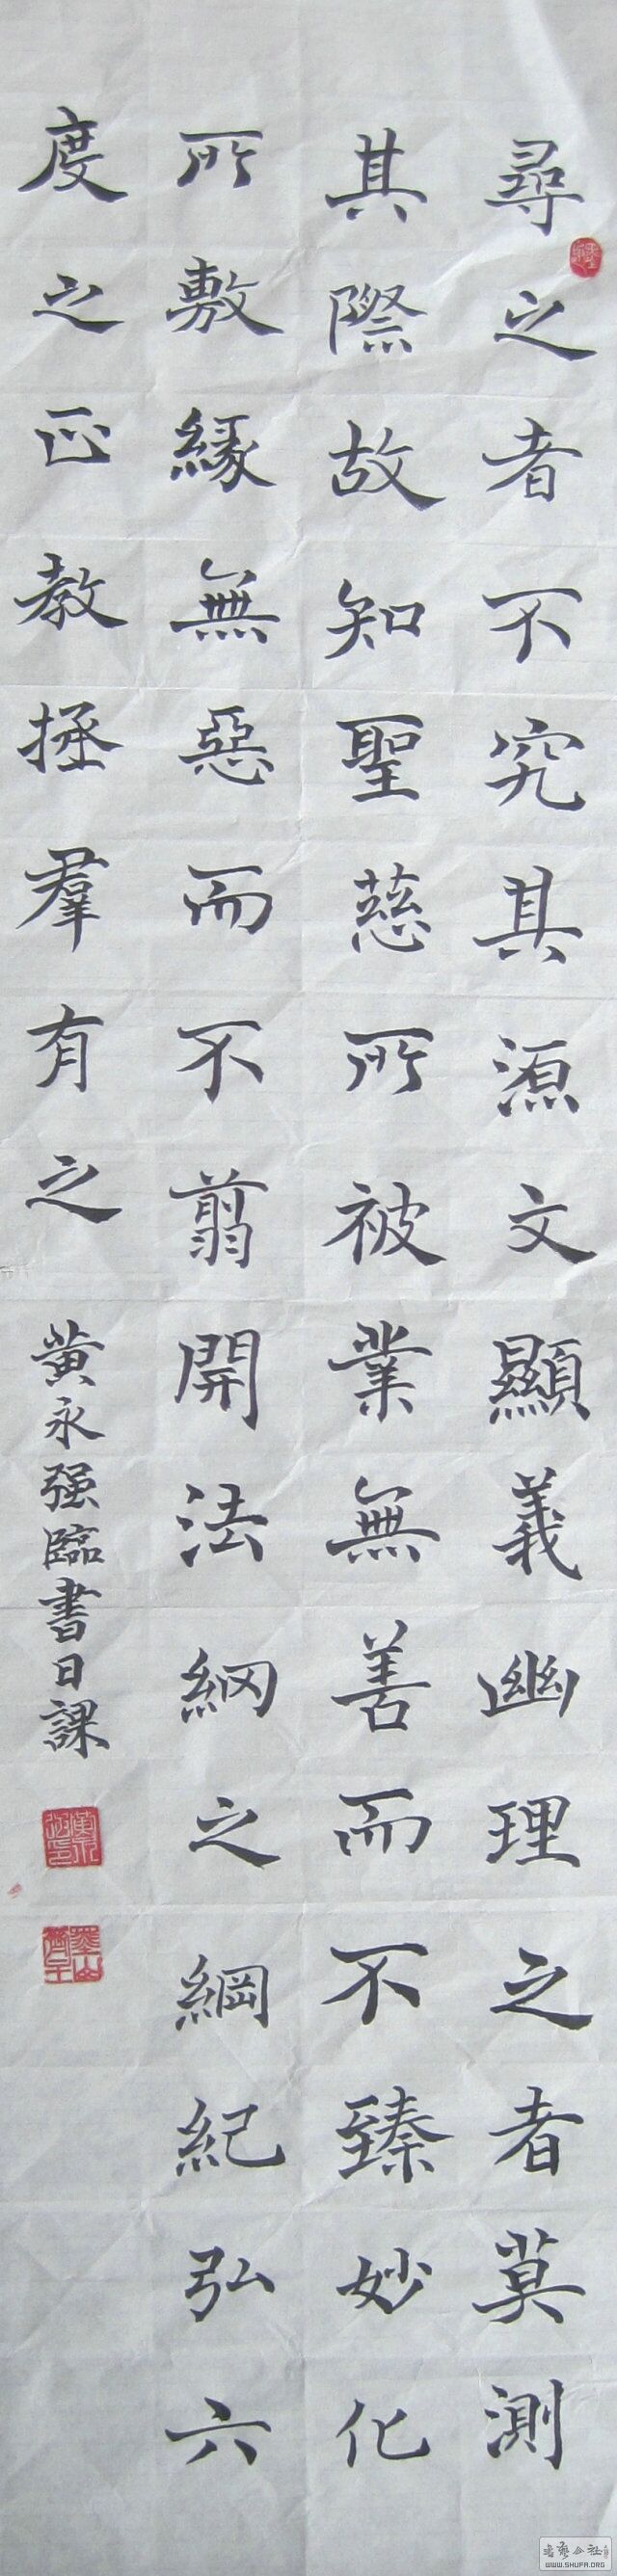 尋之者不究其源文顯義幽理之者莫測
其際故知聖慈所被業無善而不臻妙化
所敷緣無惡而不翦開法網之綱紀弘六
度之正教拯羣有之
黄永强臨書日課
WWW.SHUFA.ORG